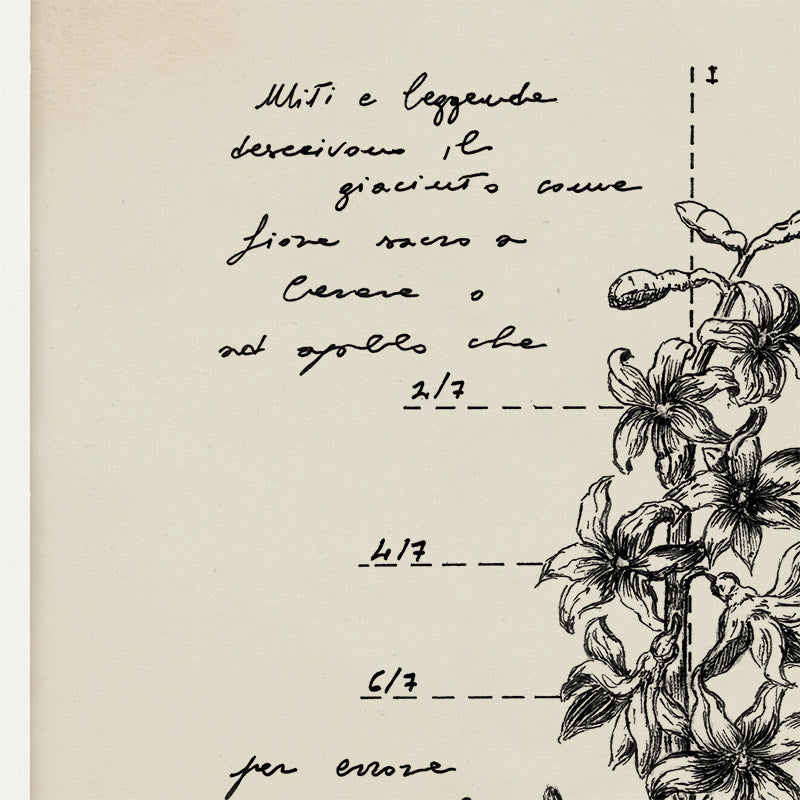 I
Miti e leggende
descrivono il
giacinto come
fiore sacro a
Cerere o
ad apollo che
2/7
4/7
6/7
per errore